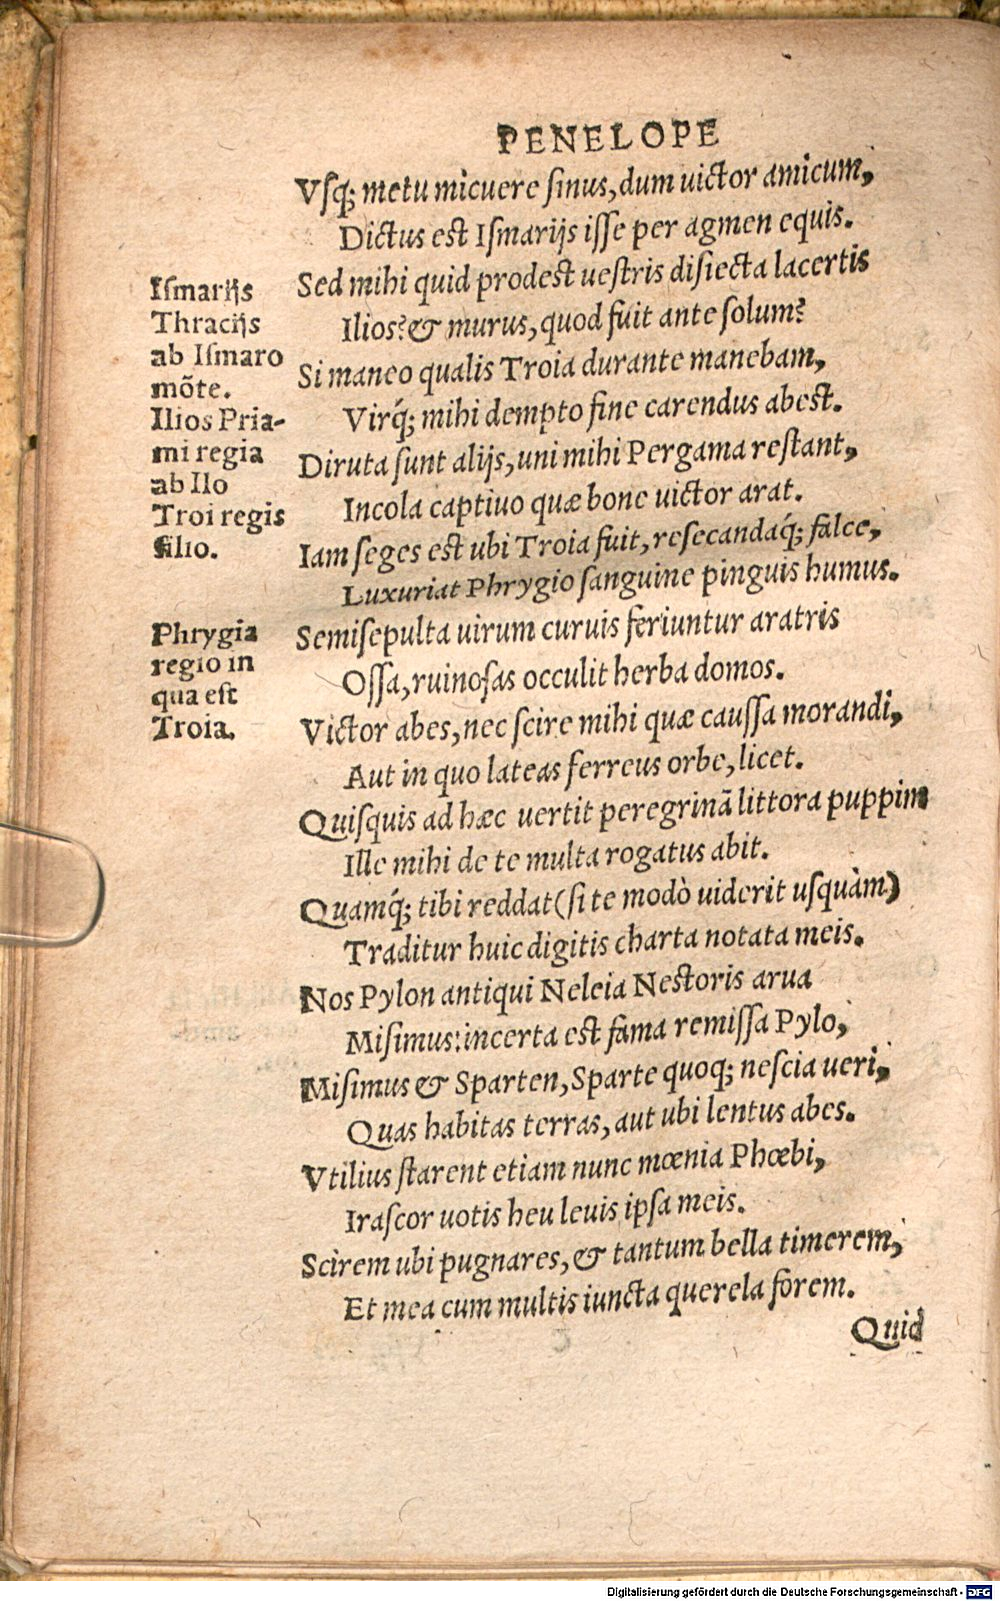 PENELOPE
Vſq; metu micuere ſinus, dum uictor amicum,
Dictus est Iſmarijs iſſe per agmen equis.
Sed mihi quid prodest ueſtris diſiecta lacertis
Ilios? & murus, quod fuit ante ſolum?
Si maneo qualis Troia durante manebam,
Virq́; mihi dempto fine carendus abest.
Diruta ſunt alijs, uni mihi Pergama reſtant,
Incola captiuo quæ boue uictor arat.
Iam ſeges est ubi Troia fuit, reſecandaq́; falce,
Luxuriat Phrygio ſanguine pinguis humus.
Semiſepulta uirum curuis feriuntur aratris
Oſſa, ruinoſas occulit herba domos.
Victor abes, nec ſcire mihi quæ cauſſa morandi,
Aut in quo lateas ferreus orbe, licet.
Quiſquis ad hæc uertit peregrinā littora puppim
Ille mihi de te multa rogatus abit.
Quamq́; tibi reddat (ſi te modò uiderit uſquàm)
Traditur huic digitis charta notata meis.
Nos Pylon antiqui Neleia Neſtoris arua
Miſimus: incerta est fama remiſſa Pylo,
Miſimus & Sparten, Sparte quoq; neſcia ueri,
Quas habitas terras, aut ubi lentus abes.
Vtilius ſtarent etiam nunc mœnia Phœbi,
Iraſcor uotis heu leuis ipſa meis.
Scirem ubi pugnares, & tantum bella timerem,
Et mea cum multis iuncta querela forem.
Quid
Iſmarijs
Thracijs
ab Iſmaro
mõte.
Ilios Pria-
mi regia
ab Ilo
Troi regis
filio.
Phrygia
regio in
qua eſt
Troia.
Digitalisierung gefördert durch die Deutsche Forschungsgemeinschaft - DFG